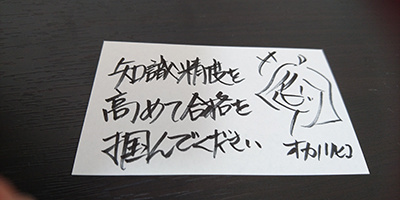 知識精度を
高めて合格を
掴んでください